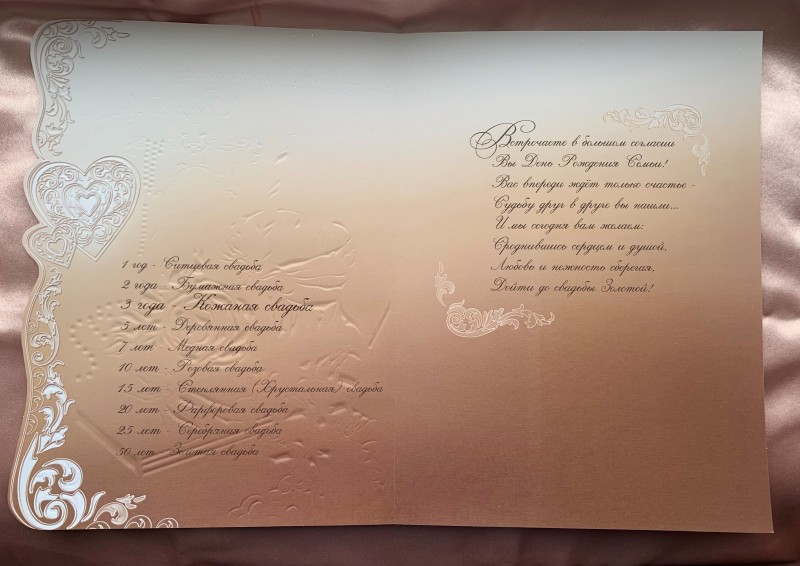 1 год - Ситцевая свадьба
2 года - Бумажная свадьба
3 года - Кожаная свадьба
5 лет - Деревянная свадьба
7 лет - Медная свадьба
10 лет - Розовая свадьба
15 лет - Стеклянная (Хрустальная) свадьба
20 лет - Фарфоровая свадьба
25 лет - Серебряная свадьба
50 лет - Золотая свадьба
Встречаете в большом согласии
Вы День Рождения Семьи!
Вас впереди ждёт только счастье -
Судьбу друг в друге вы нашли...
И мы сегодня вам желаем:
Сроднившись сердцем и душой,
Любовь и нежность сберегая,
Дойти до свадьбы Золотой!